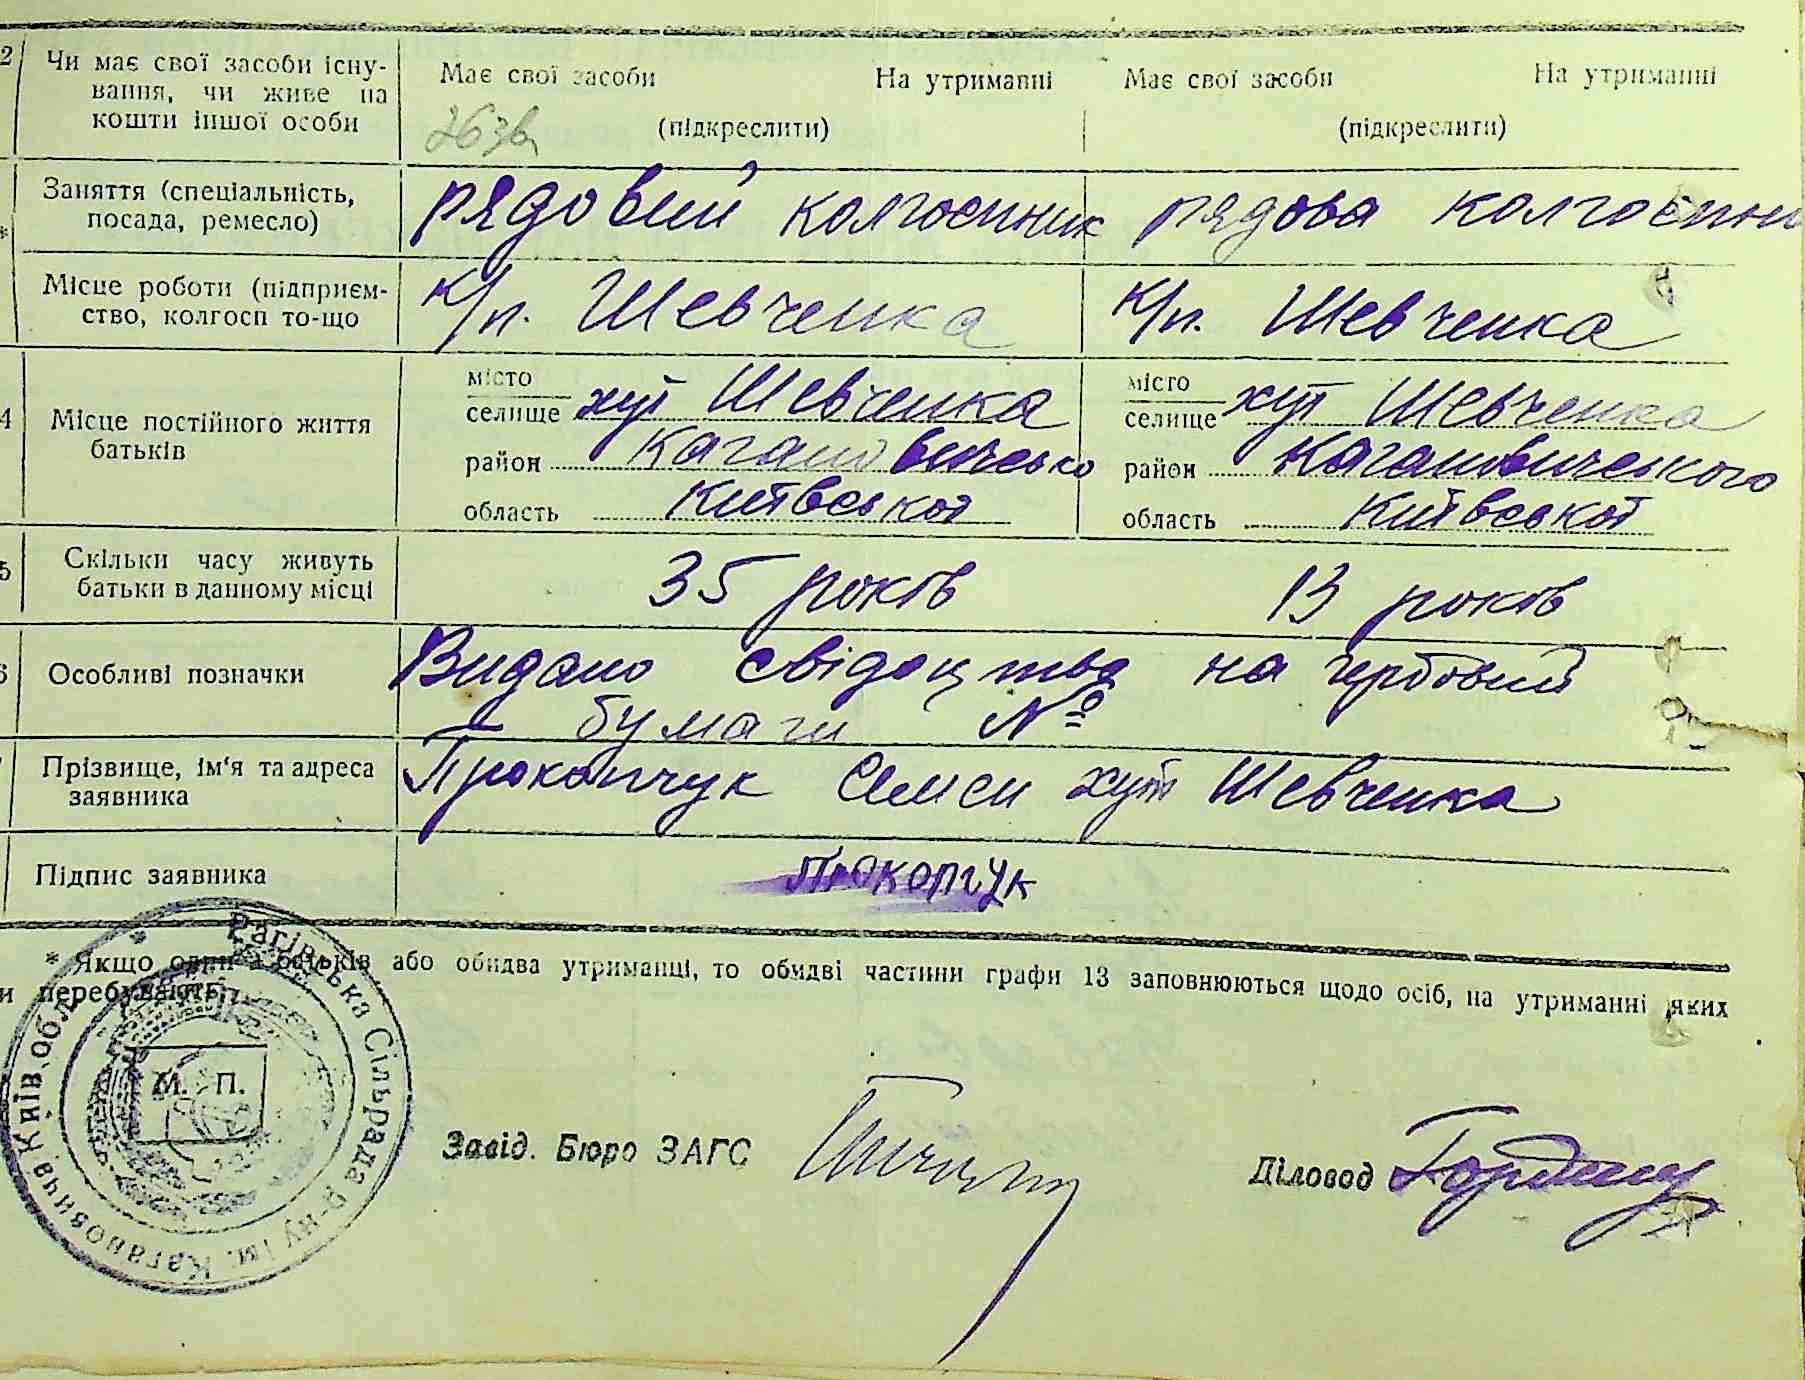 2 Чи має свої засоби існу- Має свої засоби На утриманні Має свої засоби На утриманні
вання, чи живе на
кошти іншої особи (підкреслити) (підкреслити)
Заняття (спеціальність, рядовий колгоспник рядова колгоспни
посада, ремесло)
*
Місце роботи (підприєм- к/п. Шевченка к/п. Шевченка
ство, колгосп то-що
місто місто
селище хут Шевченка селище хут Шевченка
4 Місце постійного життя
батьків
район Кагановичсько район Кагановичського
область Київської область Київської
5 Скільки часу живуть 35 років 13 років
батьки в данному місці
6 Особливі позначки Видано свідоцтво на гербовий
бумаги №
Прізвище, ім'я та адреса Прокопчук Семен хут Шевченка
заявника
Підпис заявника Прокопчук
* Якщо один з батьків або обидва утриманці, то обидві частини графи 13 заповнюються щодо осіб, на утриманні яких
и перебувають.
Рагірська Сільрада р-ну ім. Кагановича Київ. обл.
М. П.
Завід. Бюро ЗАГС
Діловод